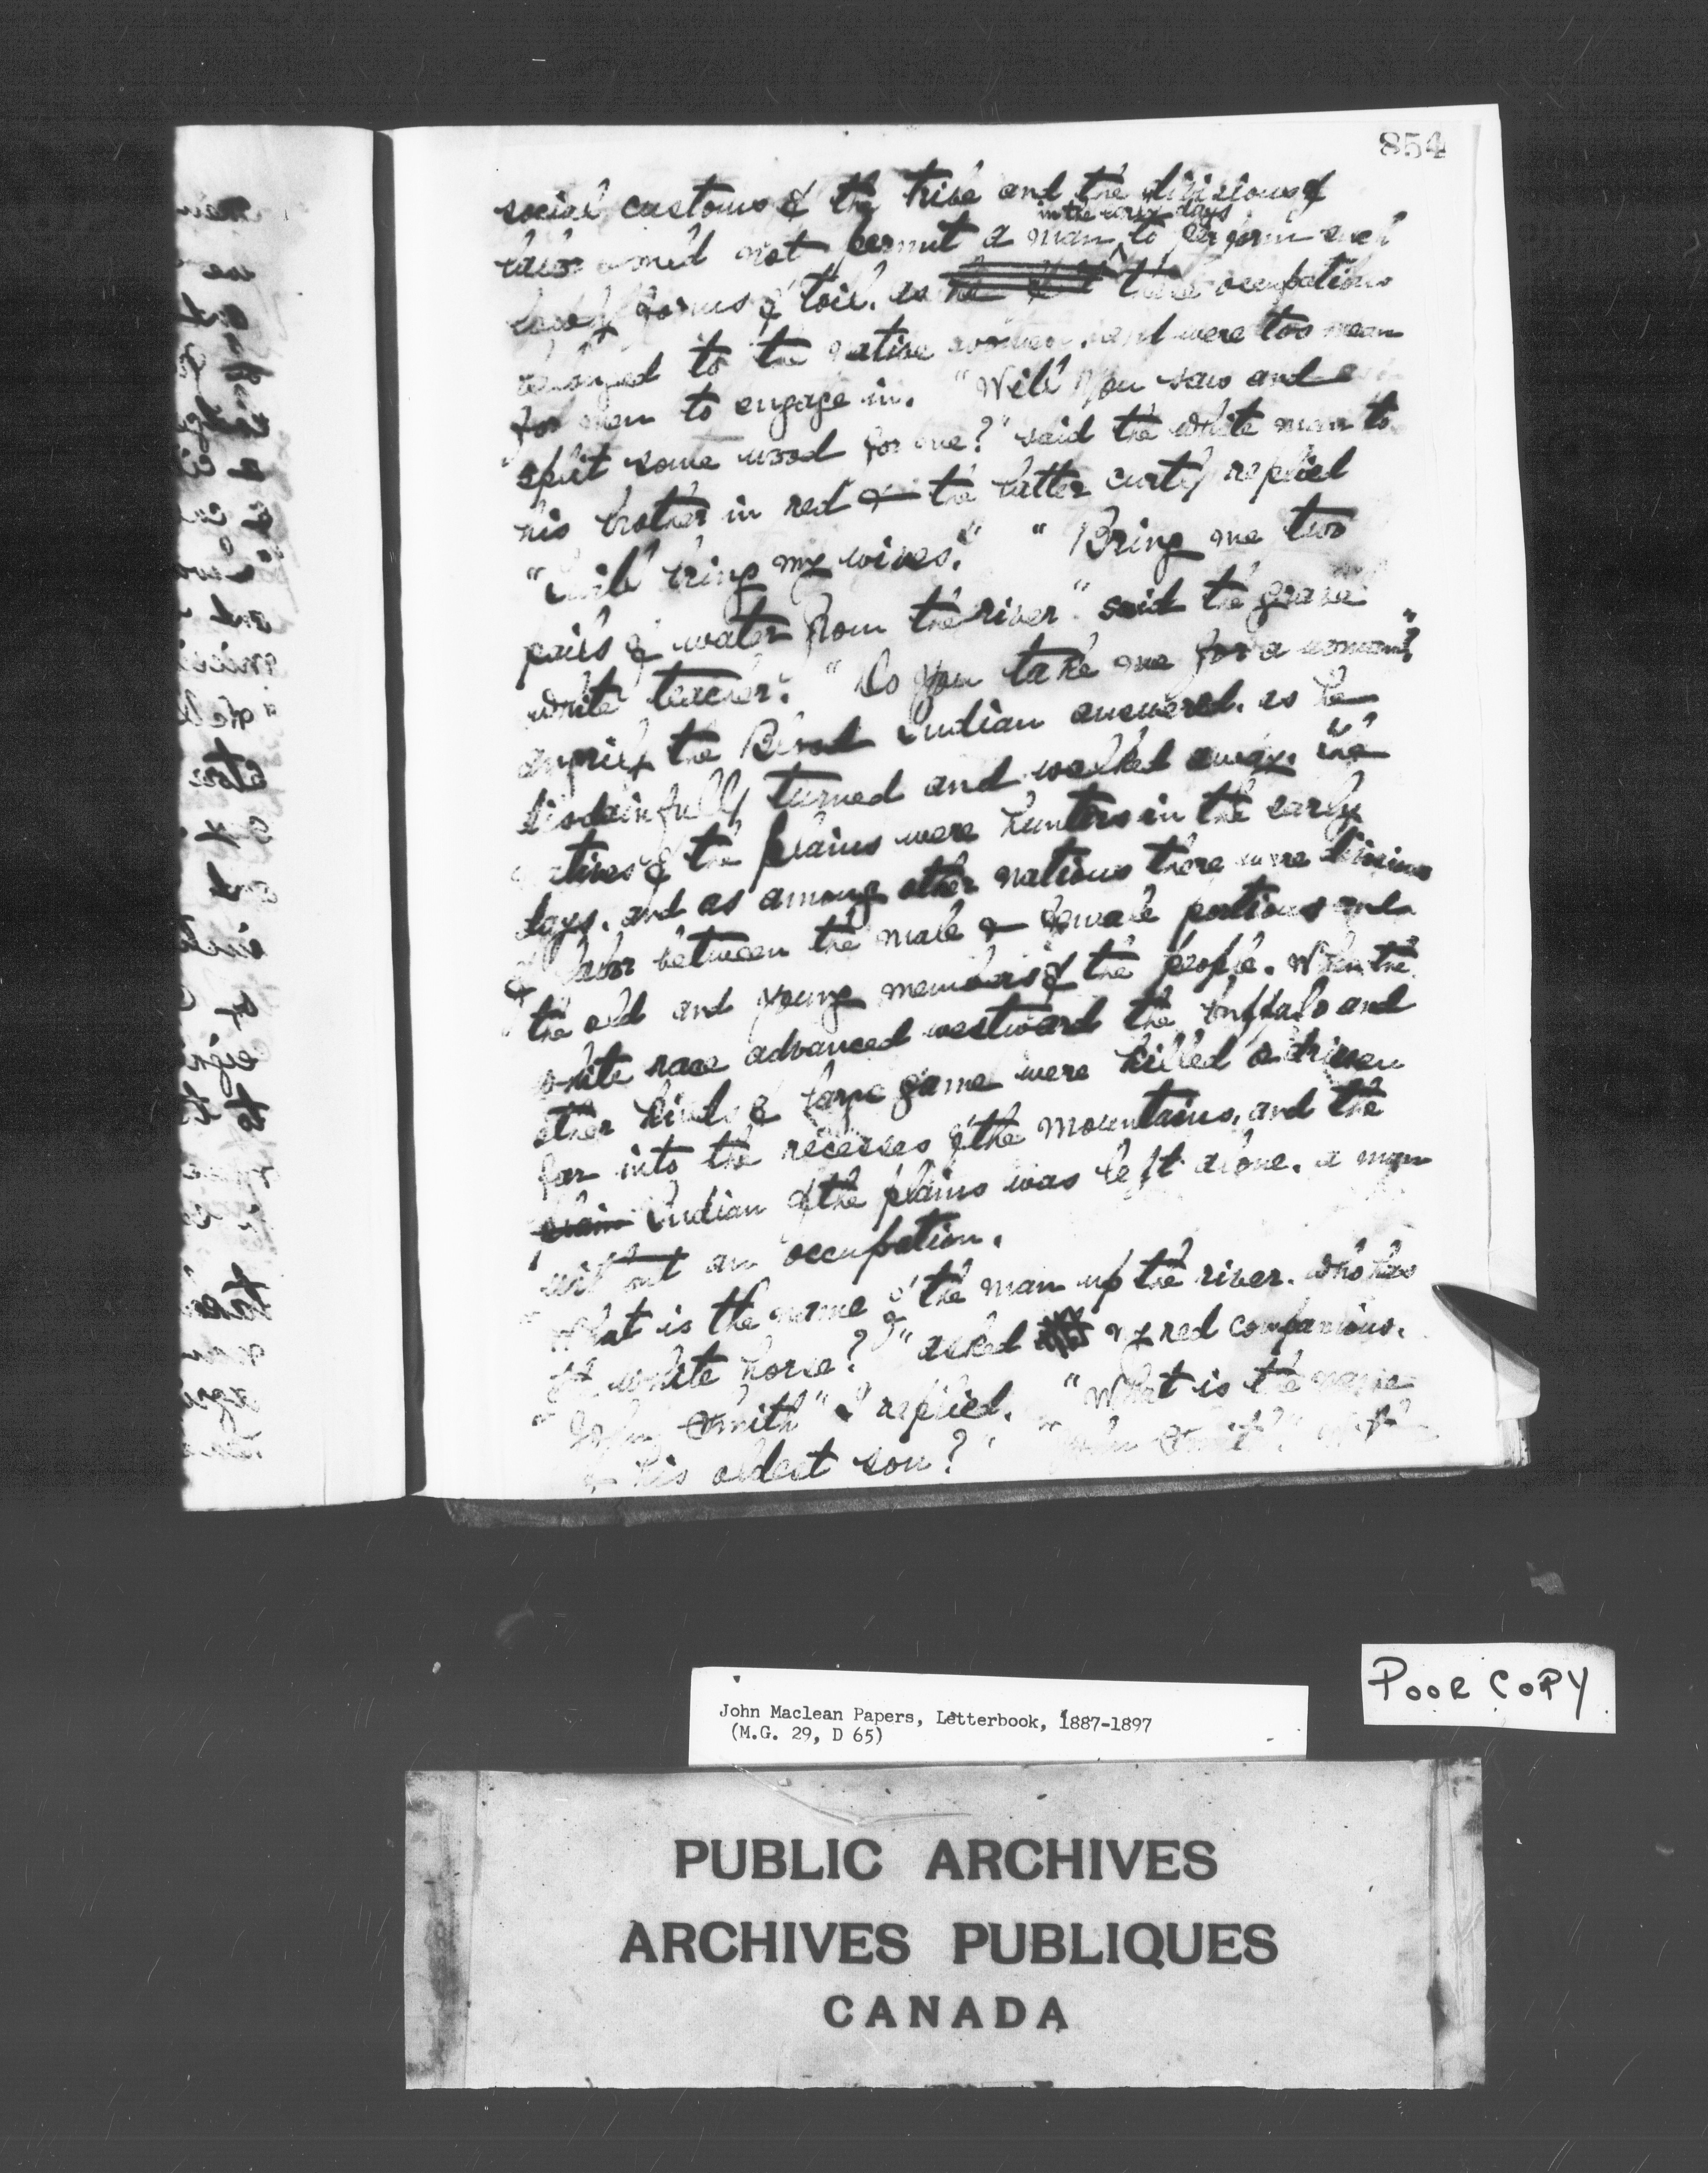 854
social customs of the tribe and the divisions of
in the early days
labor would not permit a man to perform such
lowly forms of toil, as these occupations
belonged to the native women, and were too mean
for men to engage in. "Will you saw and
split some wood for me?" said the white man to
his brother in red & the latter curtly replied
"I will bring my wives." "Bring me two
pails of water from the river." said the grave
white teacher. "Do you take me for a woman?"
angrily the Blood Indian answered, as he
disdainfully turned and walked away. The
natives of the plains were hunters in the early
days, and as among other nations there were divisions
of labor between the male & female portions and
the old and young members of the people. When the
white race advanced westward the buffalo and
other kinds of large game were killed or driven
far into the recesses of the mountains, and the
Indian of the plains was left alone, a man
without an occupation.
"What is the name of the man up the river, who has
the white horse?" asked my red companions.
"John Smith" I replied. "What is the name
of his oldest son?" "John Smith."
POOR COPY
John Maclean Papers, Letterbook, 1887-1897
(M.G. 29, D 65)
PUBLIC ARCHIVES
ARCHIVES PUBLIQUES
CANADA